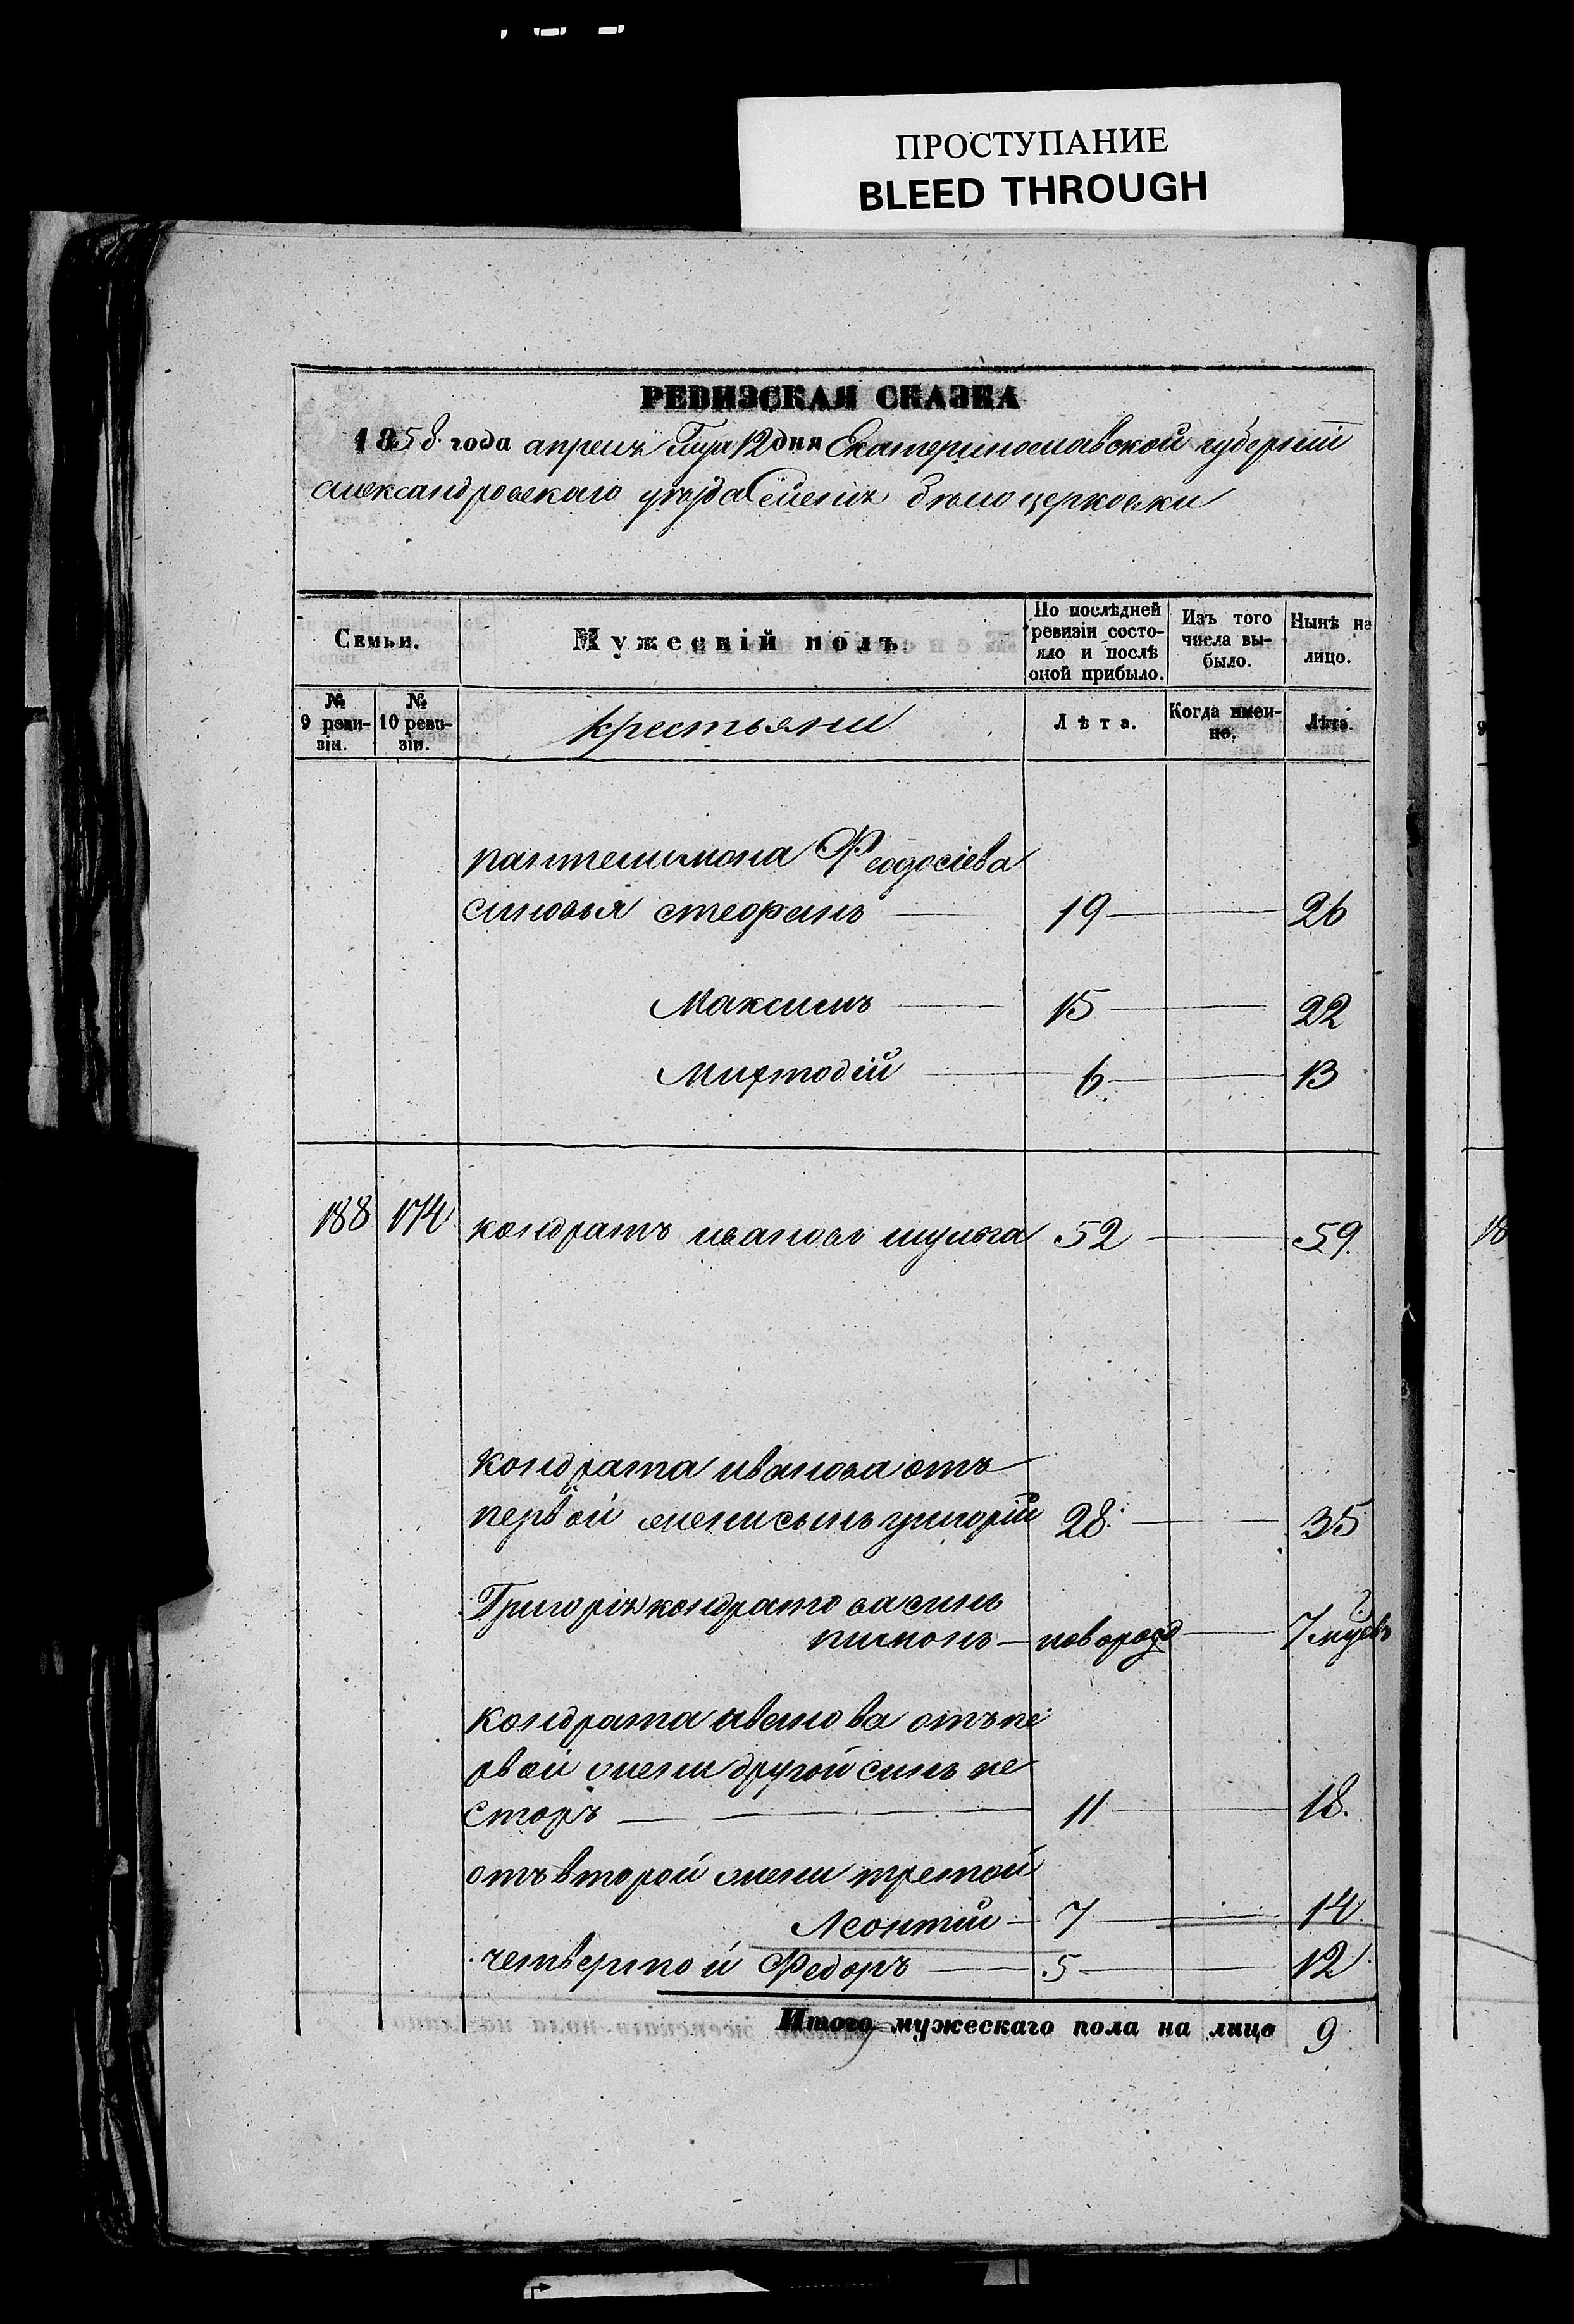 ПРОСТУПАНИЕ
BLEED THROUGH
РЕВИЗСКАЯ СКАЗКА
1858 года апреля 12 дня Екатеринославской губернiи
александровскаго уезда бѣлоцерковки
Семьи.
Мужескiй полъ
По послѣдней ревизiи состояло и послѣ оной прибыло.
Изъ того числа выбыло.
Нынѣ на лицо.
№ 9 ревизiи.
№ 10 ревизiи.
крестьяни
Лѣта.
Когда именно.
Лѣта.
пантелимона Феодосiева
синовья стефанъ 19 26
Максимъ 15 22
Мифтодiй 6 13
188 174 кондратъ ивановъ шульга 52 59.
кондрата иванова отъ
первой жени сынъ григорiй 28. 35
Григорiя кондратова синъ
пимонъ новорожд 7 мцевъ
кондрата иванова отъ пе
рвой жени другой синъ не
сторъ 11 18.
отъ второй жени третой
Леонтiй 7 14
четвертой Федоръ 5 12
Итого мужескаго пола на лицо 9
18